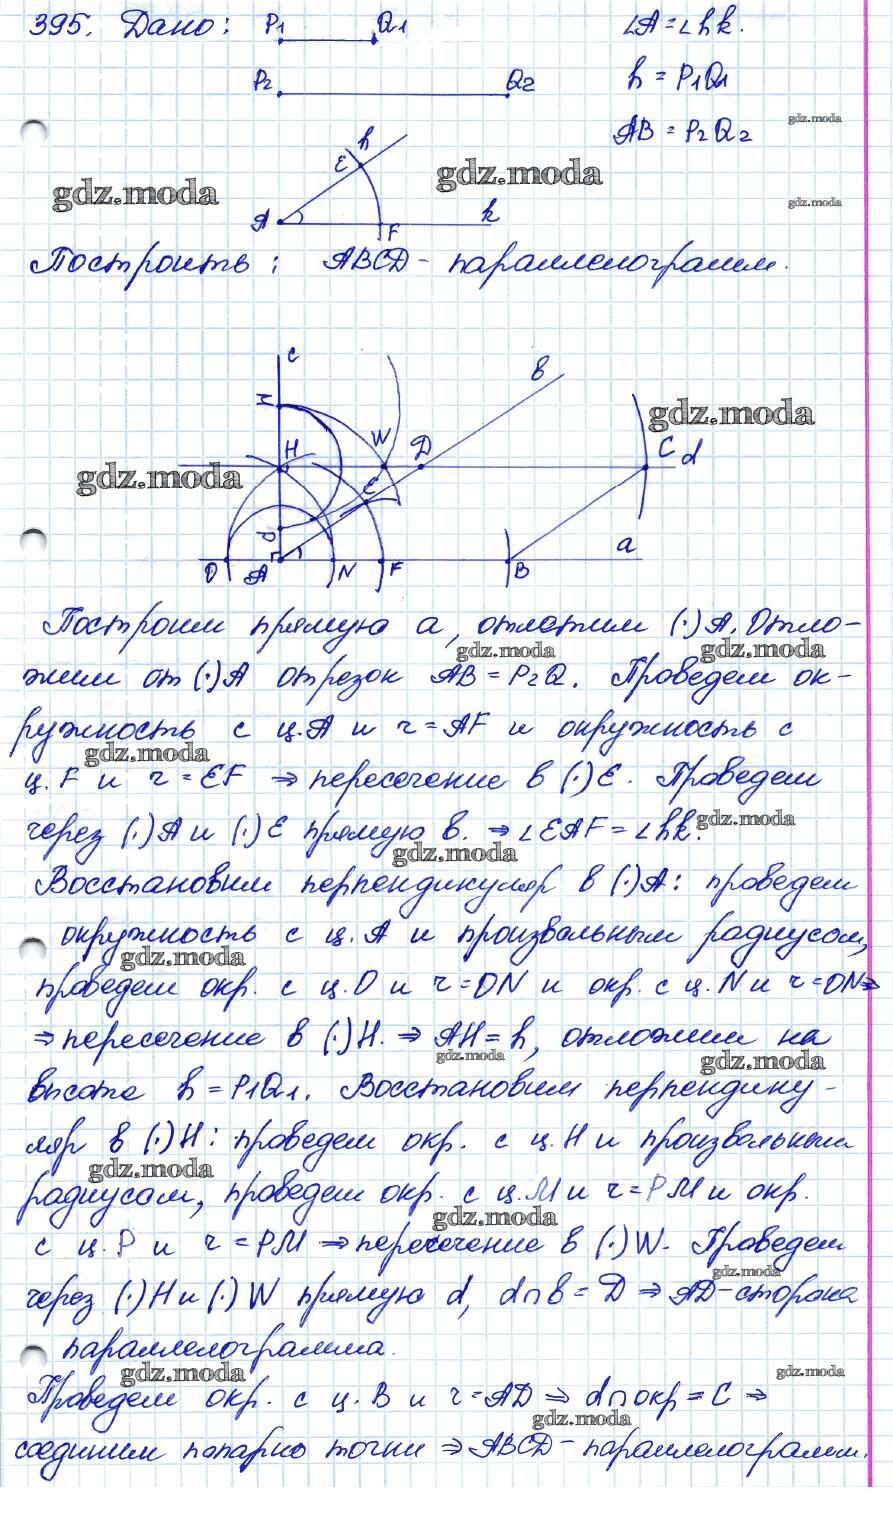 395. Дано: P₁ Q₁ ∠A = ∠hk.
P₂ Q₂ h = P₁Q₁
AB = P₂Q₂
gdz.moda
h
E
gdz.moda
gdz.moda
A F k
gdz.moda
Построить: ABCD - параллелограмм.
c
b
M
gdz.moda
H W D C d
gdz.moda
E
a
O A N F B
Построим прямую a, отметим (·)A. Отло-
gdz.moda gdz.moda
жим от (·)A отрезок AB = P₂Q. Проведем ок-
ружность с ц.A и r = AF и окружность с
gdz.moda
ц.F и r = EF ⇒ пересечение в (·)E. Проведем
через (·)A и (·)E прямую b. ⇒ ∠EAF = ∠hk.
gdz.moda
gdz.moda
Восстановим перпендикуляр в (·)A: проведем
окружность с ц.A и произвольным радиусом,
gdz.moda
проведем окр. с ц.O и r = ON и окр. с ц.N и r = ON ⇒
⇒ пересечение в (·)H. ⇒ AH = h, отложим на
gdz.moda gdz.moda
высоте h = P₁Q₁. Восстановим перпендику-
ляр в (·)H: проведем окр. с ц.H и произвольным
gdz.moda
радиусом, проведем окр. с ц.M и r = PM и окр.
gdz.moda
с ц.P и r = PM ⇒ пересечение в (·)W. Проведем
gdz.moda
через (·)H и (·)W прямую d, d∩b = D ⇒ AD - сторона
параллелограмма.
gdz.moda gdz.moda
Проведем окр. с ц.B и r = AD ⇒ d∩окр = C ⇒
gdz.moda
соединим попарно точки ⇒ ABCD - параллелограмм.